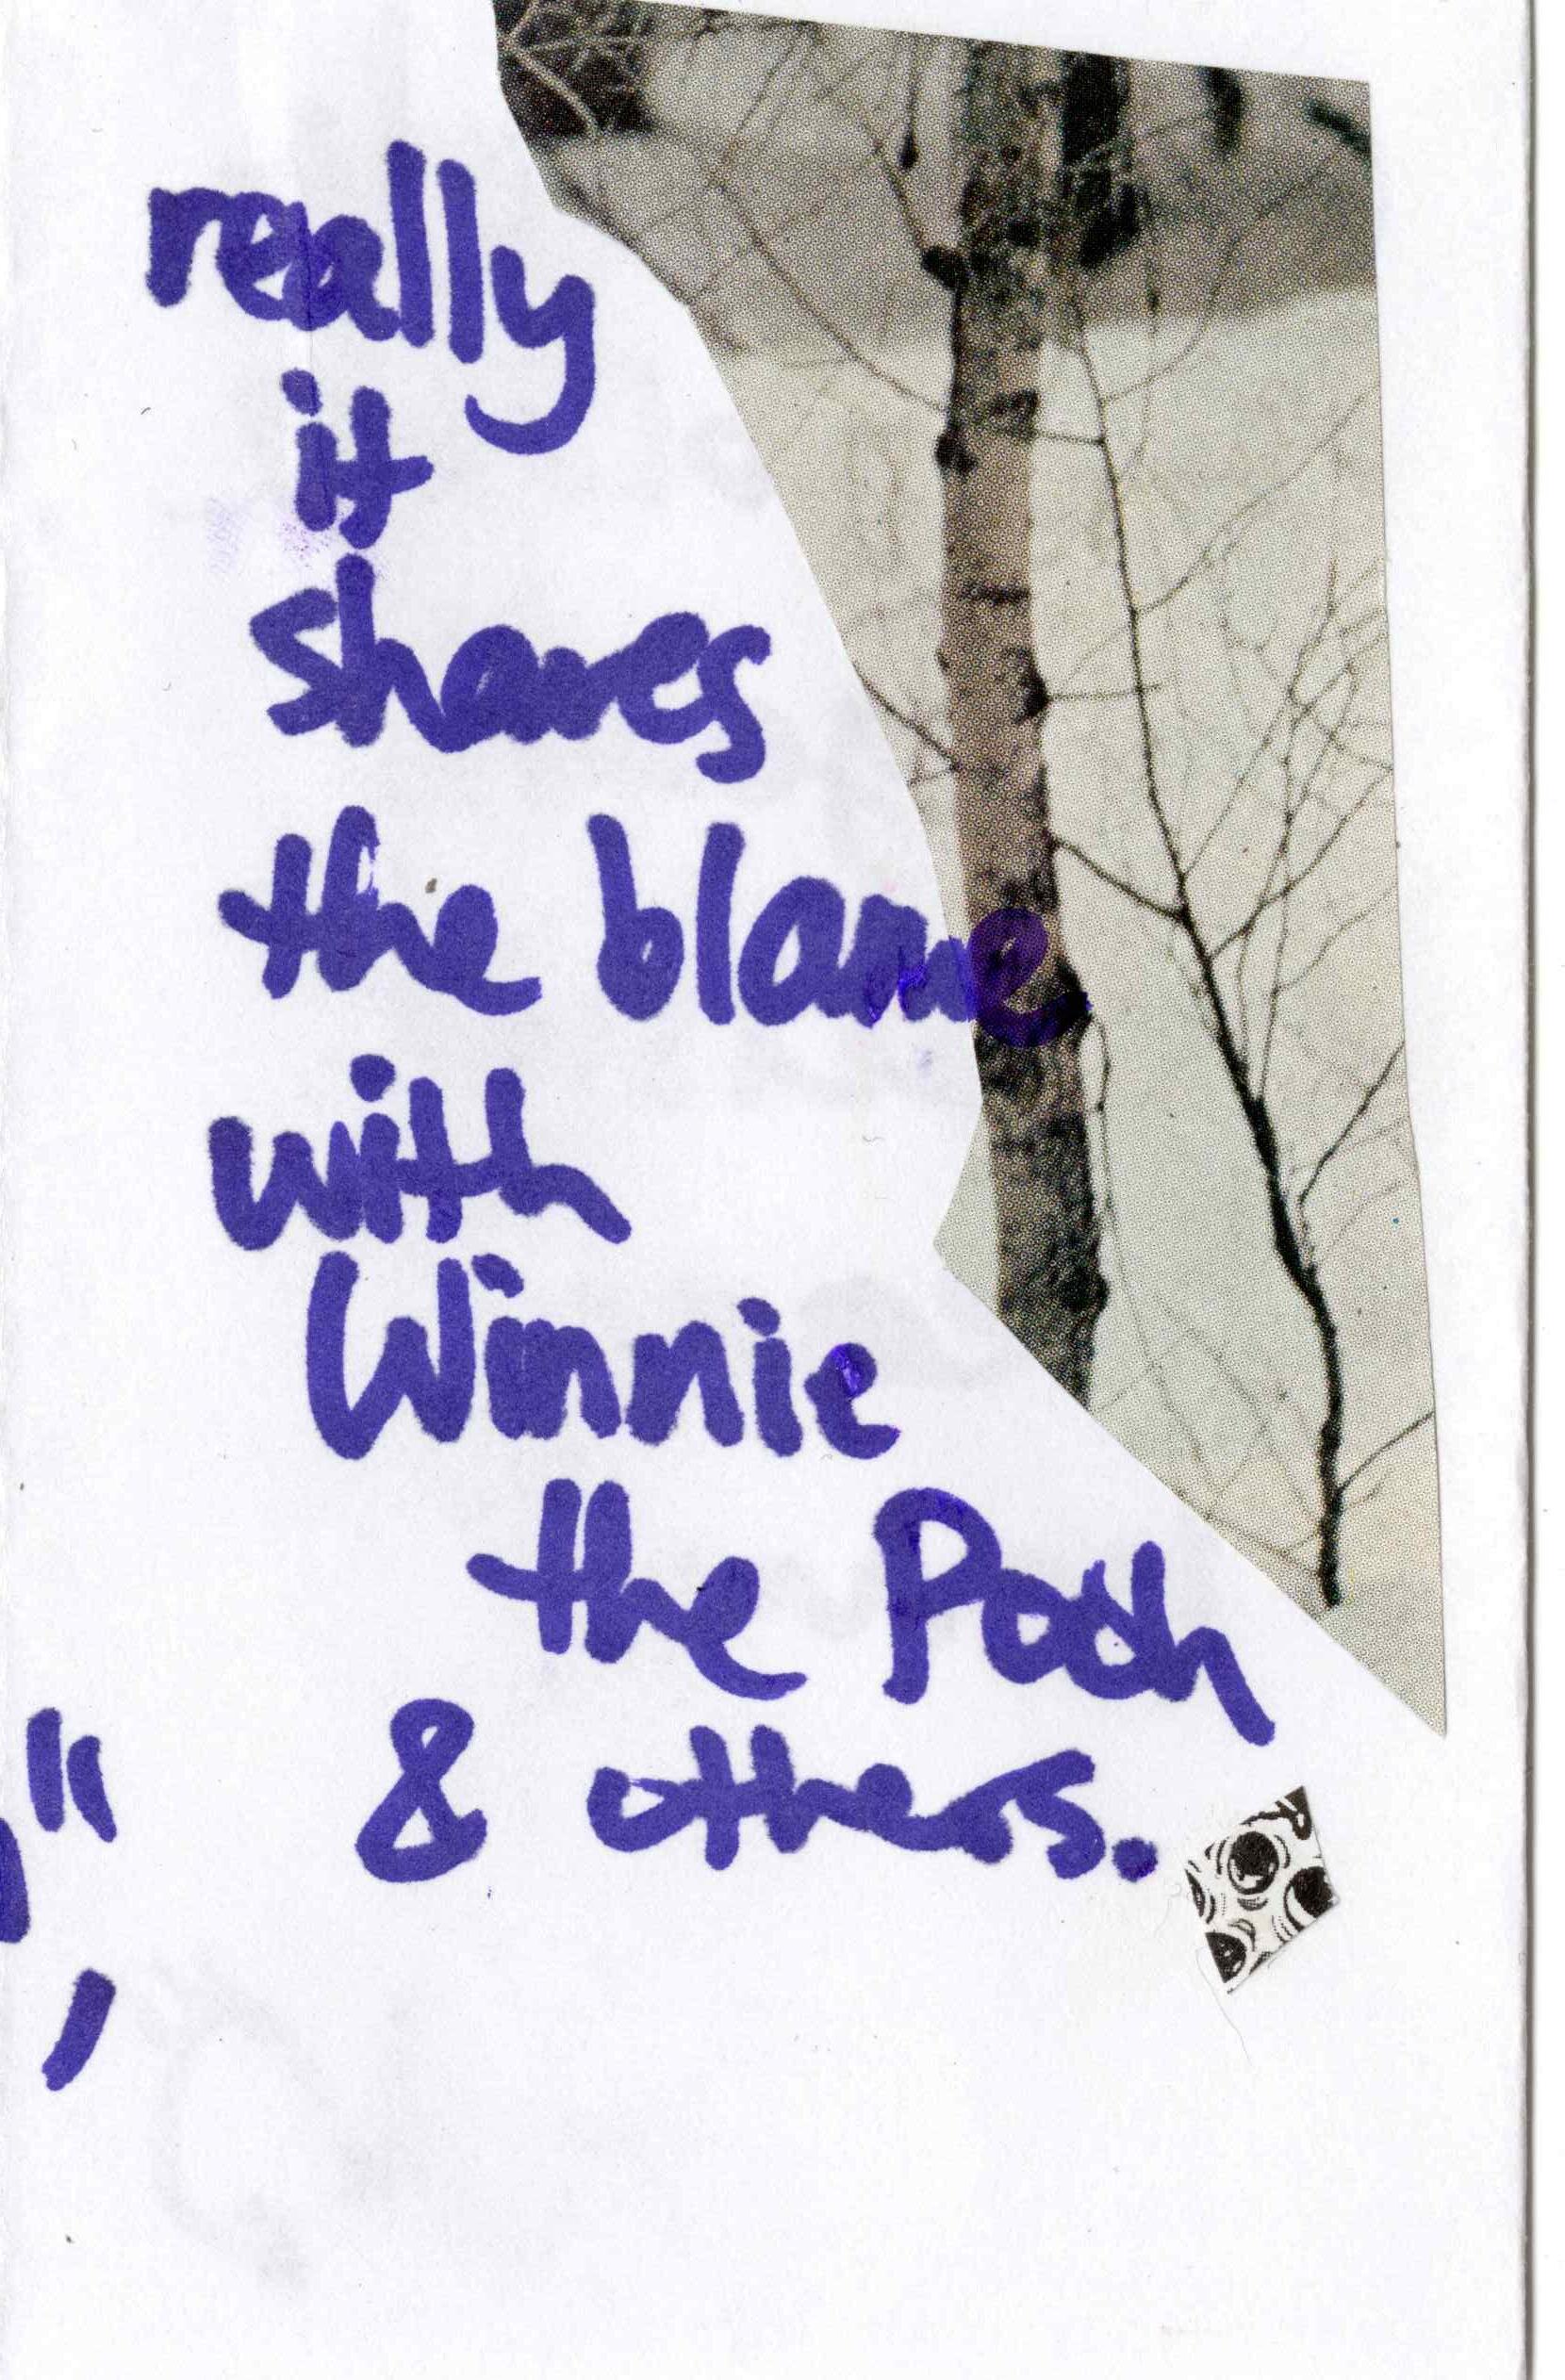 really
it
shares
the blame
with
Winnie
the Pooh
& others.
"
,